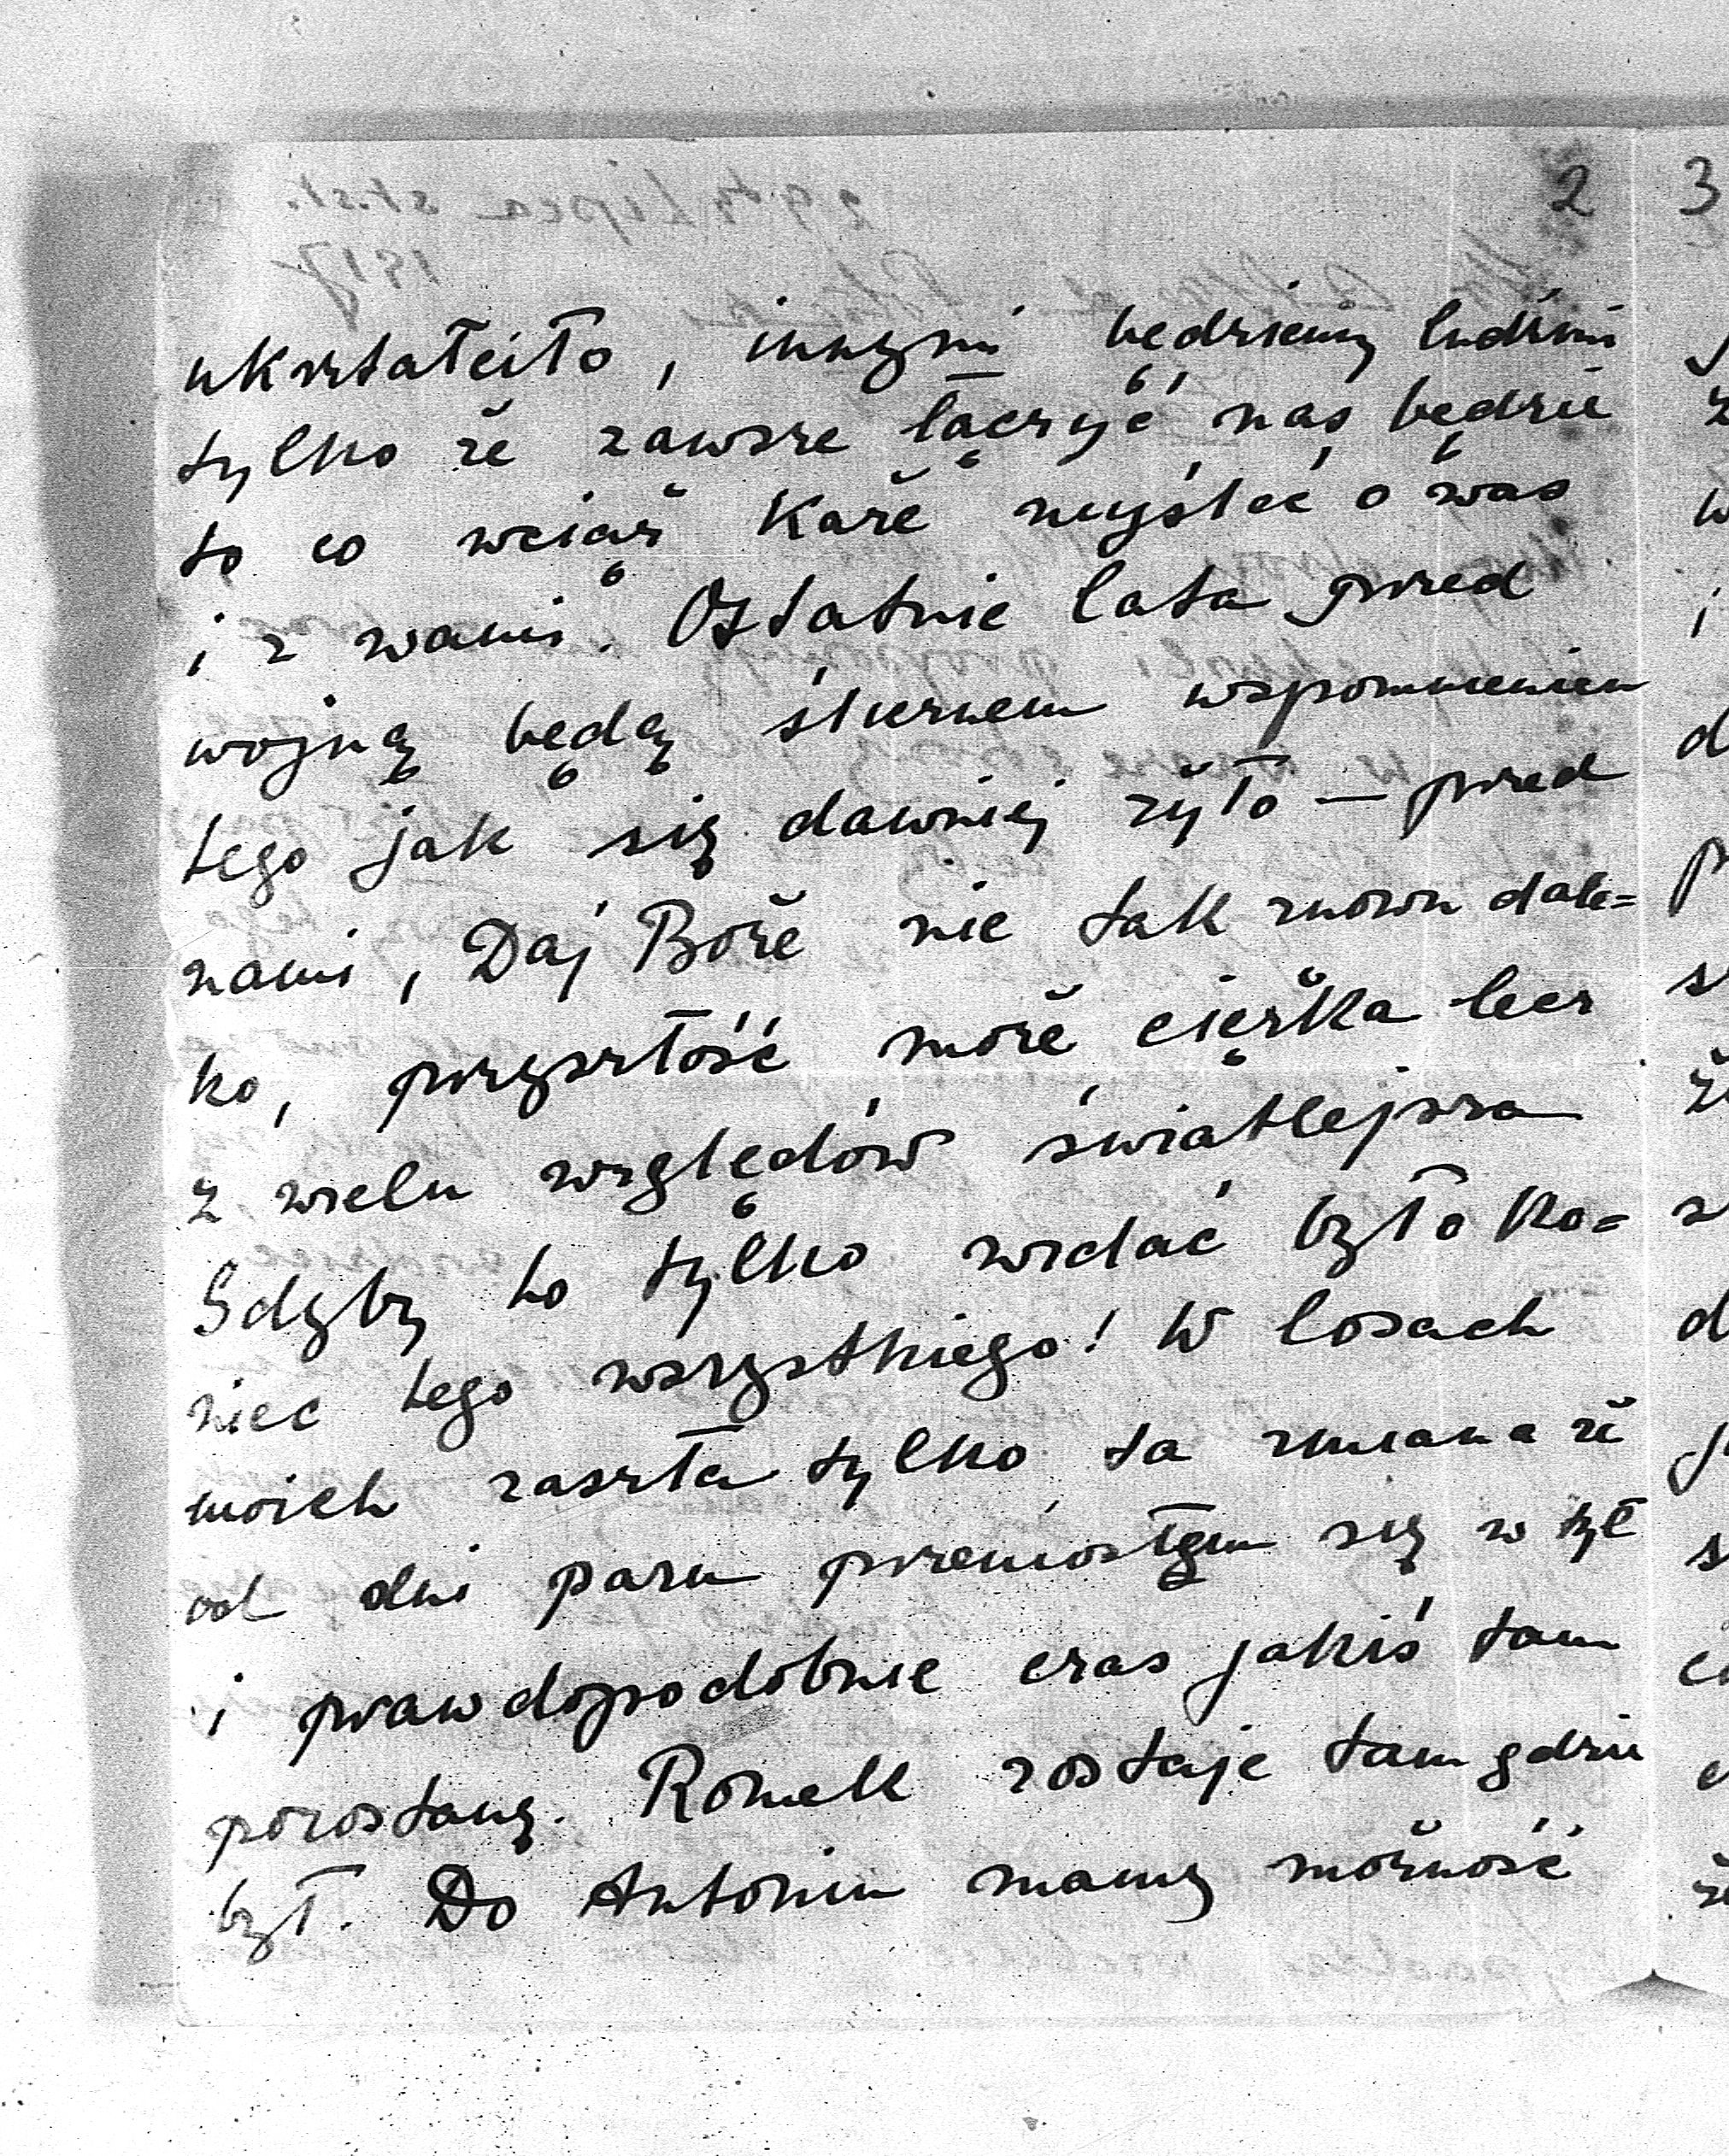 2
ukształciło, innymi będziemy ludźmi
tylko że zawsze łączyć nas będzie
to co wciąż każe myśleć o was
i z wami. Ostatnie lata przed
wojną będą ślicznem wspomnieniem
tego jak się dawniej żyło — przed
nami, Daj Boże nie tak znowu dale=
ko, przyszłość może ciężka lecz
z wielu względów światlejsza
Gdyby to tylko widać było ko=
niec tego wszystkiego! W losach
moich zaszła tylko ta zmiana że
od dni paru przeniosłem się w tył
i prawdopodobnie czas jakiś tam
pozostanę. Romek zostaje tam gdzie
był. Do Antonin mamy możność
3